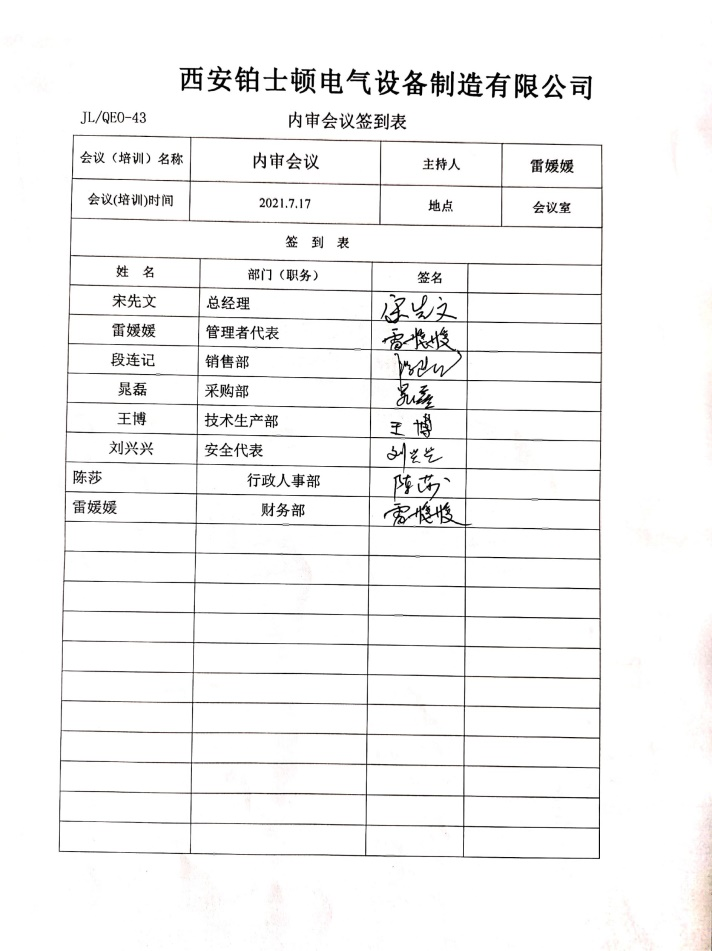 西安铂士顿电气设备制造有限公司
JL/QEO-43 内审会议签到表
会议（培训）名称 内审会议 主持人 雷媛媛
会议(培训)时间 2021.7.17 地点 会议室
签 到 表
姓 名 部门（职务） 签名
宋先文 总经理 宋先文
雷媛媛 管理者代表 雷媛媛
段连记 销售部
晁磊 采购部 晁磊
王博 技术生产部 王博
刘兴兴 安全代表 刘兴兴
陈莎 行政人事部 陈莎
雷媛媛 财务部 雷媛媛